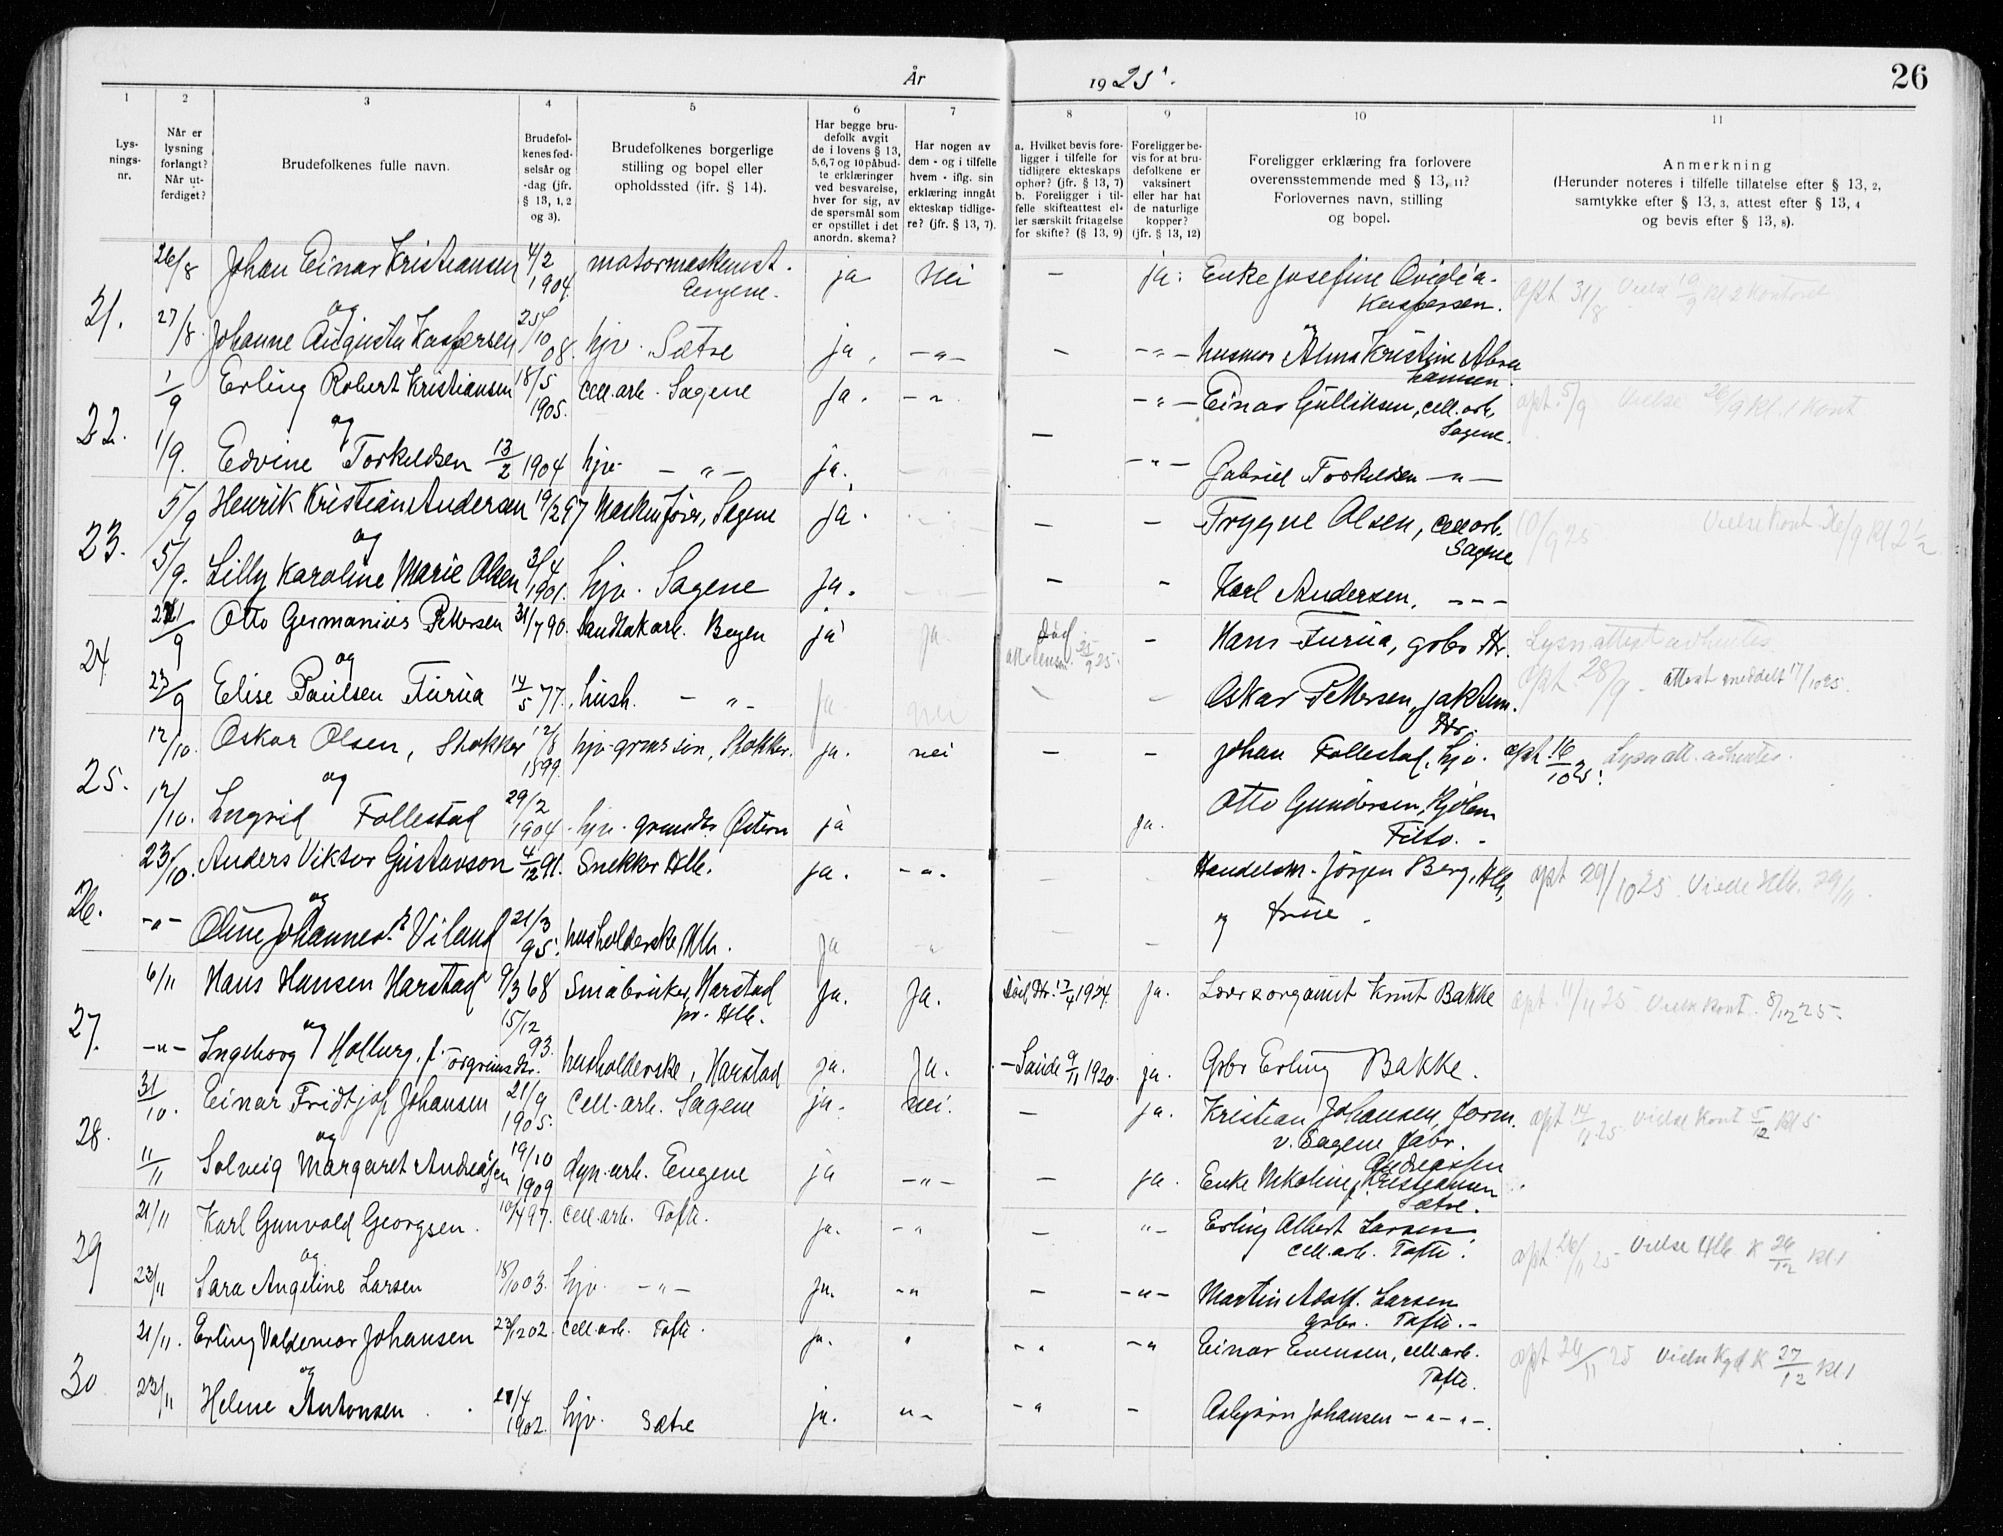 År 1925. 26
1 2 3 4 5 6 7 8 9 10 11
Lys-
nings-
nr.
Når er
lysning
forlangt?
Når ut-
ferdiget?
Brudefolkenes fulle navn.
Brudefol-
kenes fød-
selsår og
-dag (jfr.
§ 13, 1, 2
og 3).
Brudefolkenes borgerlige
stilling og bopel eller
opholdssted (jfr. § 14).
Har begge bru-
defolk avgit
de i lovens § 13,
5,6,7 og 10 påbud-
te erklæringer
ved besvarelse,
hver for sig, av
de spørsmål som
er opstillet i det
anordn. skema?
Har nogen av
dem - og i tilfelle
hvem - iflg. sin
erklæring inngått
ekteskap tidlige-
re? (jfr. § 13, 7).
a. Hvilket bevis fore-
ligger i tilfelle for
tidligere ekteskaps
ophør? (jfr. § 13, 7)
b. Foreligger i til-
felle skifteattest el-
ler særskilt fritagelse
for skifte? (§ 13, 9)
Foreligger be-
vis for at bru-
defolkene er
vaksinert
eller har hat
de naturlige
kopper?
(jfr. § 13, 12)
Foreligger erklæring fra forlovere
overensstemmende med § 13, 11?
Forlovernes navn, stilling
og bopel.
Anmerkning
(Herunder noteres i tilfelle tillatelse efter § 13, 2,
samtykke efter § 13, 3, attest efter § 13, 4
og bevis efter § 13, 8).
21.
26/8 Johan Einar Kristiansen 4/2 1904. motormaskinist. Engene. ja Nei — ja. Enke Josefine Ovidia Kaspersen. opt 31/8 Vielse 19/9 kl 2 kontoret
og
27/8. Johanne Augusta Kaspersen 25/10 08. hjv. Sætre ja. -"- — -"- husmor Alma Kristine Abrahamsen.
22.
1/9 Erling Robert Kristiansen 18/5 1905. cell.arb. Sagene ja. -"- -"- Einar Gulliksen, cell.arb. Sagene. opt. 5/9 Vielse 26/9 kl. 1 Kont
og
1/9. Edvine Torkildsen 13/2 1904 hjv. -"- ja. — -"- Gabriel Torkildsen -"-
23.
5/9 Henrik Kristian Andersen 19/2 97 Maskinfører, Sagene ja. — - Trygve Olsen, cell.arb. Sagene 10/9 25 Vielse Kont 26/9 kl 2 1/2
og
5/9. Lilly Karoline Marie Olsen 3/4 1901. hjv. Sagene ja. — - Karl Andersen. ---
24
21/9 Otto Germanius Pettersen 31/7 90. Sandtakarb. Bøgen ja ja. Død 25/9 25. - Hans Furua, gbr. Hr. Lysn.attest avhentes
og
23/9 Elise Paulsen Furua 14/5 77. hush. -"- ja. nei - - Oskar Pettersen, Hr. opt. 28/9. attest meddelt 17/10 25.
25.
12/10. Oskar Olsen, Stokker 12/8 1899. hjv. grmr søn, Stokker. ja. nei — - Johan Follestad, hjv. opt 16/10 25. Lysn att. avhentes.
og
12/10. Ingrid Follestad 29/2 1904. hjv. grmrdtr. Østern ja ja. Otto Gundersen, Filtv.
26.
23/10. Anders Viktor Gustavson 4/12 91. Snekker Hlb. ja. -"- Handelsm. Jørgen Berg, Hlb, opt 29/10 25 Vielse Hlb. 29/11
og
-"- Oline Johannesd. Viland 21/3 95. husholderske Hlb. ja -"- — - og frue.
27.
6/11 Hans Hansen Harstad 9/3 68 Småbruker, Harstad pr. Hlb. ja. Ja. Død Hr. 17/4 1924 ja. Lærer organist Knut Bakke opt. 11/11 25 Vielse Kont. 8/12 25.
og
-"- Ingeborg Holberg, f. Torgrimsdtr. 15/12 93. husholderske, Harstad ja. Ja. - Sande 9/11 1920. ja. Gbr Erling Bakke.
28.
31/10. Einar Fridtjof Johansen 21/9 1905. Cell.arb. Sagene ja. Nei. — ja. Kristian Johansen, form. v. Sagene fabr. opt 14/11 25. Vielse Kont 5/12 kl 5
og
11/11 Solveig Margaret Andreassen 19/10 1909 dyn.arb. Engene ja -"- — ja. Enke Nikoline Kristiansen Andreassen Sætre.
29
21/11 Karl Gunvald Georgsen. 10/4 97. cell.arb. Tofte. ja. -" — "- Erling Albert Larsen cell.arb. Tofte. opt 26/11 25 Vielse Hlb K 26/12 kl 1
og
23/11 Sara Angeline Larsen 18/10 03. hjv. -"- ja. -" — -"- Martin Adolf Larsen gbr. Tofte.
30
21/11. Erling Valdemar Johansen 23/12 02. cell.arb. Tofte. ja. " -" -" Einar Evensen, cell.arb. Tofte. opt 26/11 25 Vielse Kgd K 27/12 kl 1
og
23/11 Helene Antonsen 28/4 1902. hjv. Sætre ja. "- -" - Asbjørn Johansen -"-"-